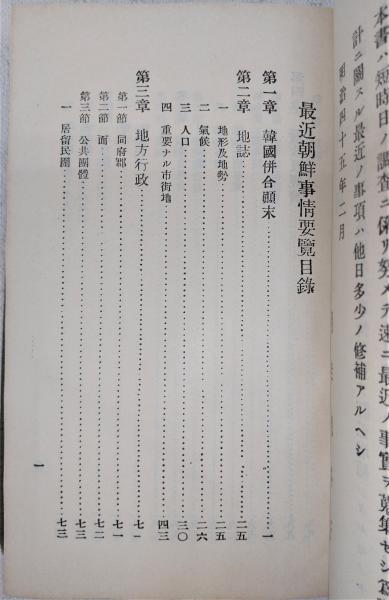 本書ハ短時日ノ調査ニ係リ努メテ速ニ最近ノ事實ヲ蒐集セシ
計ニ關スル最近ノ事項ハ他日多少ノ修補アルヘシ
明治四十五年二月
最近朝鮮事情要覽目錄
第一章 韓國併合顚末……一
第二章 地誌……二五
一 地形及地勢……二五
二 氣候……二六
三 人口……三〇
四 重要ナル市街地……四三
第三章 地方行政……七一
第一節 同府郡……七一
第二節 面……七二
第三節 公共團體……七三
一 居留民團……七三
一